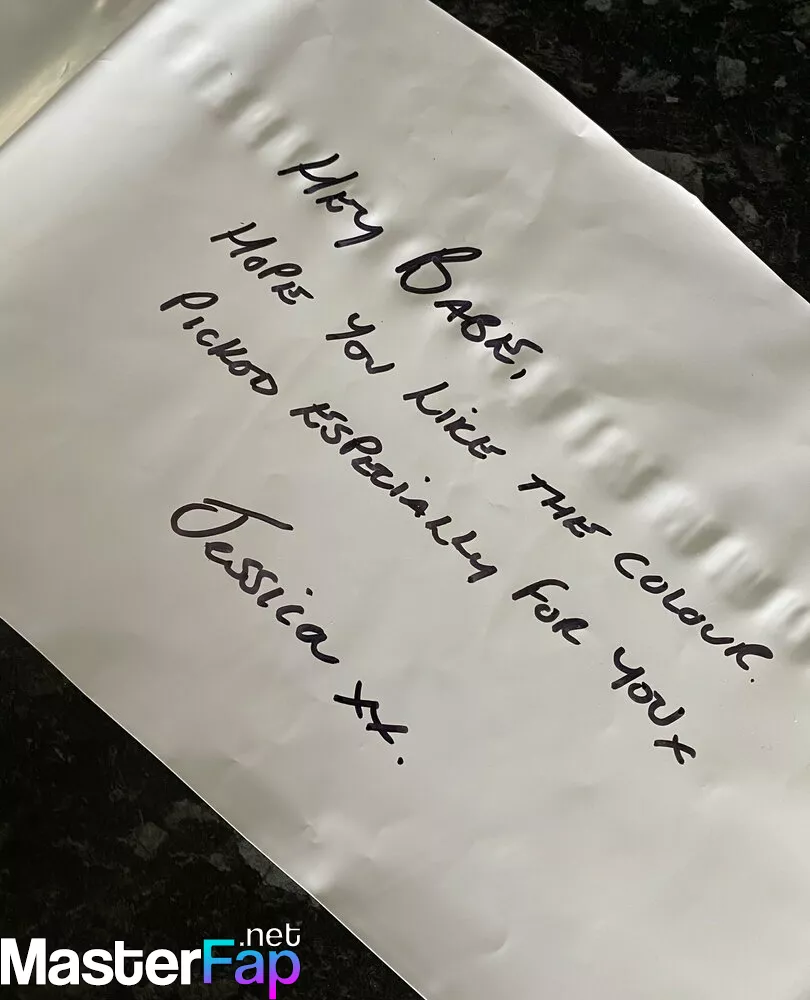 HEY BABE,
HOPE YOU LIKE THE COLOUR.
PICKED ESPECIALLY FOR YOU x
Jessica xx.
MasterFap.net